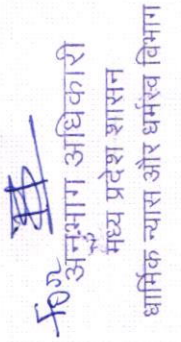 for
अनुभाग अधिकारी
मध्य प्रदेश शासन
धार्मिक न्यास और धर्मस्व विभाग